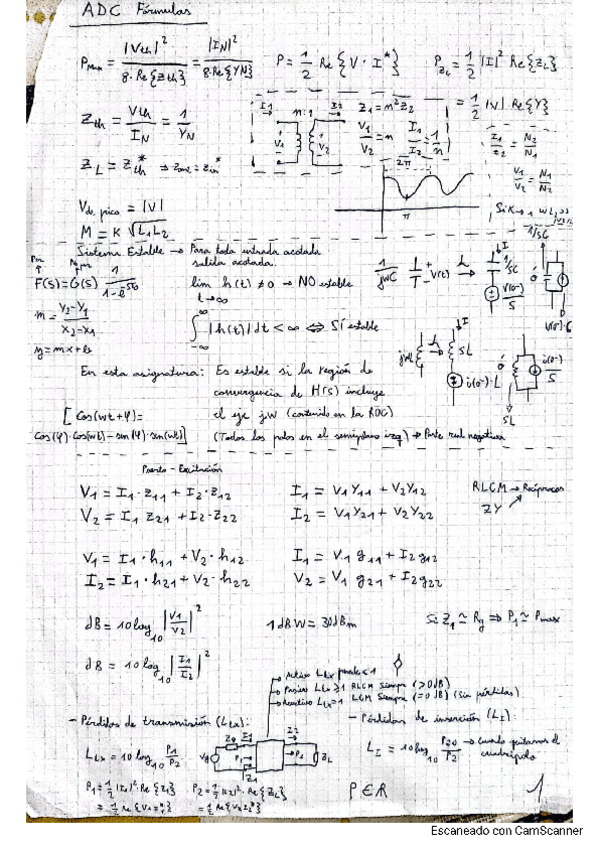 ADC Fórmulas
Pmax = |Vth|² / 8·Re{Zth} = |IN|² / 8·Re{YN}   P = 1/2 Re{V·I*}   PZL = 1/2 |I|² Re{ZL}
= 1/2 |V|² Re{Y}
Zth = Vth / IN = 1 / YN
I1 n:1 I2   Z1 = n² Z2
V1 V2   V1/V2 = n   I1/I2 = 1/n
I1/I2 = N2/N1
V1/V2 = N1/N2
ZL = Zth*
2π
π
Vde pico = |V|
M = K √L1L2
Sistema Estable → Para toda entrada acotada
salida acotada.
F(s) = G(s) 1/1-e
lim h(t) ≠ 0 → NO estable
t→∞
1/jωC   V(t)   I   1/SC   V(0-)/S   V(0-)·C
m = Y2-Y1 / X2-X1
∫ |h(t)| dt < ∞ ⇔ SÍ estable
-∞
jωL   SL   I   i(0-)·L   i(0-)/S   SL
En esta asignatura: Es estable si la región de
convergencia de H(s) incluye
el eje jω (contenido en la ROC)
[Cos(ωt+φ)=
Cos(φ)·Cos(ωt) - sen(φ)·sen(ωt)]
(Todos los polos en el semiplano izq) → Parte real negativa
Puerto - Excitación
V1 = I1·Z11 + I2·Z12   I1 = V1Y11 + V2Y12   RLCM → Recíprocos
V2 = I1 Z21 + I2·Z22   I2 = V1Y21 + V2Y22   ZY
V1 = I1·h11 + V2·h12   I1 = V1 g11 + I2 g12
I2 = I1·h21 + V2·h22   V2 = V1 g21 + I2 g22
dB = 10log10 |V1/V2|²   1dBW = 30dBm   Si Z1 ≃ Rg ⇒ P1 ≃ Pmax
dB = 10log10 |I1/I2|²
→ Activo Ltx puede < 1
→ Pasivo Ltx ≥ 1 RLCM Siempre (≥0dB)
→ Reactivo Ltx = 1 LCM Siempre (=0dB) (Sin pérdidas)
- Pérdidas de transmisión (Ltx):   - Pérdidas de inserción (LI):
Ltx = 10log10 P1/P2   Zg I1 I2 P1 P2 ZL Z1   LI = 10log10 P20/P2 → Cuando quitamos el
cuadripolo
P1 = 1/2 |I1|²·Re{Z1}   P2 = 1/2 |I2|²·Re{ZL}   P ∈ R
= 1/2 Re{V1·I1*}   = 1/2 Re{V2 I2*}
1
Escaneado con CamScanner